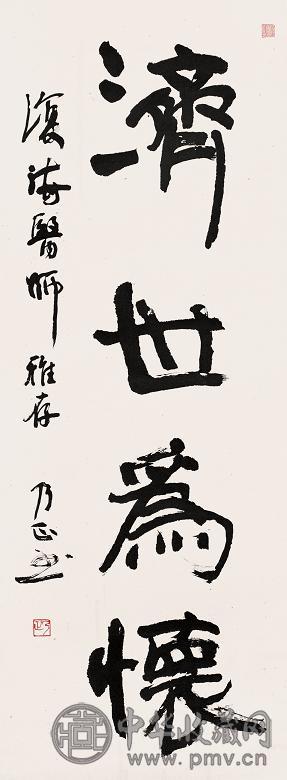 濟世為懷
海醫師 雅存 乃正書
中华收藏网
www.pmv.cn